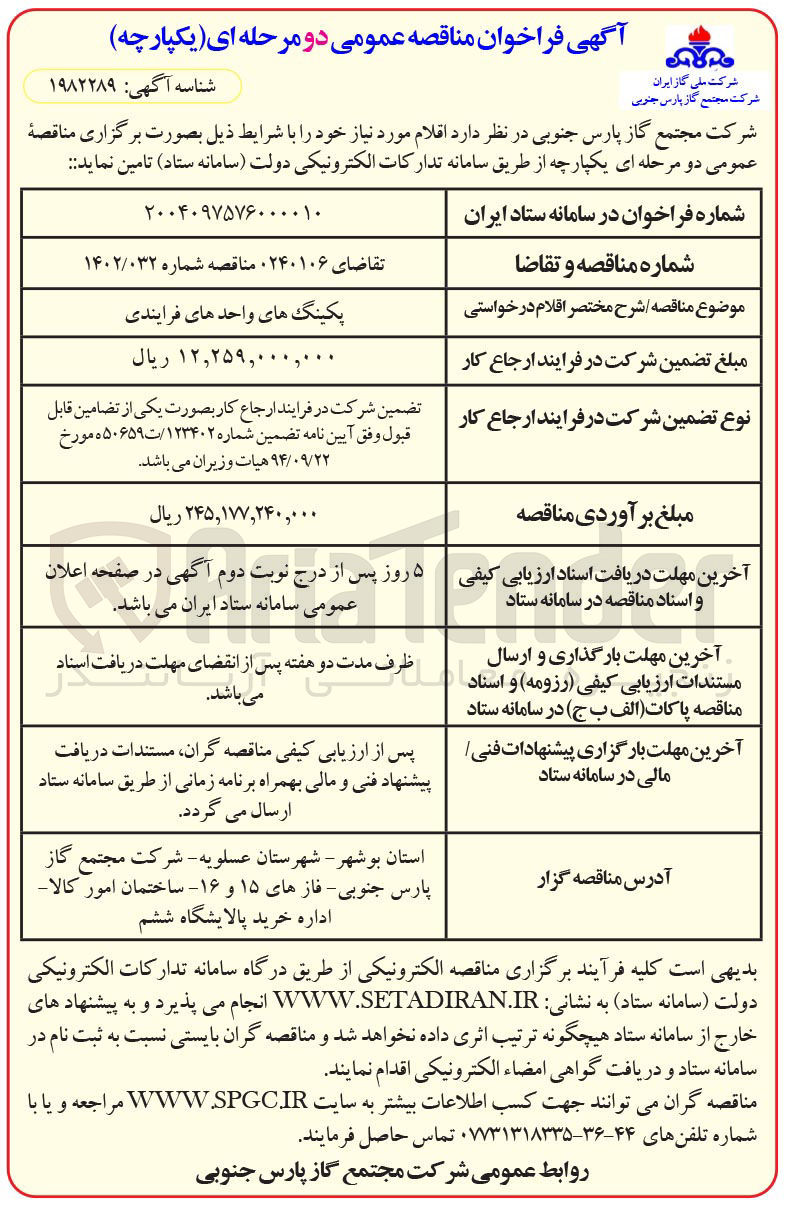 آگهی فراخوان مناقصه عمومی دو مرحله ای(یکپارچه)
شرکت ملی گاز ایران
شرکت مجتمع گاز پارس جنوبی
شناسه آگهی: ۱۹۸۲۲۸۹
شرکت مجتمع گاز پارس جنوبی در نظر دارد اقلام مورد نیاز خود را با شرایط ذیل بصورت برگزاری مناقصهٔ
عمومی دو مرحله ای یکپارچه از طریق سامانه تدارکات الکترونیکی دولت (سامانه ستاد) تامین نماید::
شماره فراخوان در سامانه ستاد ایران
۲۰۰۴۰۹۷۵۷۶۰۰۰۰۱۰
شماره مناقصه و تقاضا
تقاضای ۰۲۴۰۱۰۶ مناقصه شماره ۱۴۰۲/۰۳۲
موضوع مناقصه/شرح مختصر اقلام درخواستی
پکینگ های واحد های فرایندی
مبلغ تضمین شرکت در فرایند ارجاع کار
۱۲,۲۵۹,۰۰۰,۰۰۰ ریال
نوع تضمین شرکت در فرایند ارجاع کار
تضمین شرکت در فرایند ارجاع کار بصورت یکی از تضامین قابل
قبول وفق آیین نامه تضمین شماره ۱۲۳۴۰۲/ت۵۰۶۵۹ه مورخ
۹۴/۰۹/۲۲ هیات وزیران می باشد.
مبلغ برآوردی مناقصه
۲۴۵,۱۷۷,۲۴۰,۰۰۰ ریال
آخرین مهلت دریافت اسناد ارزیابی کیفی
و اسناد مناقصه در سامانه ستاد
۵ روز پس از درج نوبت دوم آگهی در صفحه اعلان
عمومی سامانه ستاد ایران می باشد.
آخرین مهلت بارگذاری و ارسال
مستندات ارزیابی کیفی (رزومه) و اسناد
مناقصه پاکات(الف ب ج) در سامانه ستاد
ظرف مدت دو هفته پس از انقضای مهلت دریافت اسناد
می‌باشد.
آخرین مهلت بارگزاری پیشنهادات فنی/
مالی در سامانه ستاد
پس از ارزیابی کیفی مناقصه گران، مستندات دریافت
پیشنهاد فنی و مالی بهمراه برنامه زمانی از طریق سامانه ستاد
ارسال می گردد.
آدرس مناقصه گزار
استان بوشهر- شهرستان عسلویه- شرکت مجتمع گاز
پارس جنوبی- فاز های ۱۵ و ۱۶- ساختمان امور کالا-
اداره خرید پالایشگاه ششم
AriaTender
بدیهی است کلیه فرآیند برگزاری مناقصه الکترونیکی از طریق درگاه سامانه تدارکات الکترونیکی
دولت (سامانه ستاد) به نشانی: WWW.SETADIRAN.IR انجام می پذیرد و به پیشنهاد های
خارج از سامانه ستاد هیچگونه ترتیب اثری داده نخواهد شد و مناقصه گران بایستی نسبت به ثبت نام در
سامانه ستاد و دریافت گواهی امضاء الکترونیکی اقدام نمایند.
مناقصه گران می توانند جهت کسب اطلاعات بیشتر به سایت WWW.SPGC.IR مراجعه و یا با
شماره تلفن‌های ۴۴-۳۶-۰۷۷۳۱۳۱۸۳۳۵ تماس حاصل فرمایند.
روابط عمومی شرکت مجتمع گاز پارس جنوبی